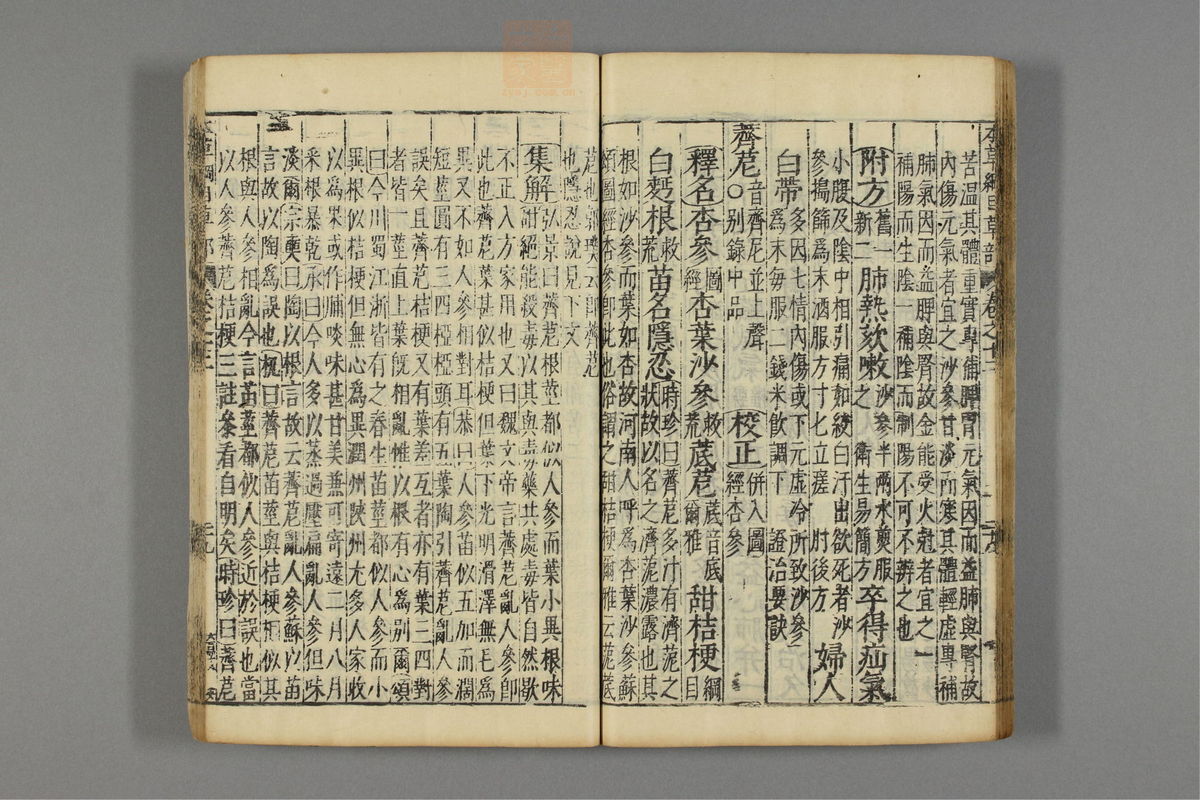 本草綱目草部 卷之十二
苦温其體重實專補脾胃元氣因而益肺與腎故
內傷元氣者宜之沙參甘淡而寒其體輕虛專補
肺氣因而益脾與腎故金能受火尅者宜之一
補陽而生陰一補陰而制陽不可不辨之也
附方 舊一新二 肺熱欬嗽 沙參半兩水煎服之 衛生易簡方 卒得疝氣
小腹及陰中相引痛如絞自汗出欲死者沙
參擣篩爲末酒服方寸匕立瘥 肘後方 婦人
白帶 多因七情內傷或下元虛冷所致沙參
爲末每服二錢米飮調下 證治要訣
薺苨 音齊尼並上聲 〇別錄中品 校正 併入圖經杏參
釋名 杏參 圖經 杏葉沙參 救荒 菧苨 菧音底爾雅 甜桔梗 綱目
白麪根 救荒 苗名隱忍 時珍曰薺苨多汁有濟苨之
狀故以名之濟苨濃露也其
根如沙參而葉如杏故河南人呼爲杏葉沙參蘇
頌圖經杏參卽此也俗謂之甜桔梗爾雅云苨菧
苨也郭璞云卽薺苨
也隱忍說見下文
集解 弘景曰薺苨根莖都似人參而葉小異根味
甜絕能殺毒以其與毒藥共處毒皆自然歇
不正入方家用也又曰魏文帝言薺苨亂人參卽
此也薺苨葉甚似桔梗但葉下光明滑澤無毛爲
異又不如人參相對耳恭曰人參苗似五加而濶
短莖圓有三四椏椏頭有五葉陶引薺苨亂人參
誤矣且薺苨桔梗又有葉差互者亦有葉三四對
者皆一莖直上葉旣相亂惟以根有心爲別爾頌
曰今川蜀江浙皆有之春生苗莖都似人參而小
異根似桔梗但無心爲異潤州陝州尤多人家收
以爲果或作脯啖味甚甘美兼可寄遠二月八月
采根暴乾承曰今人多以蒸過壓扁亂人參但味
淡爾宗奭曰陶以根言故云薺苨亂人參蘇以苗
言故以陶爲誤也機曰薺苨苗莖與桔梗相似其
根與人參相亂今言苗莖都似人參近於誤也當
以人參薺苨桔梗三註參看自明矣時珍曰薺苨